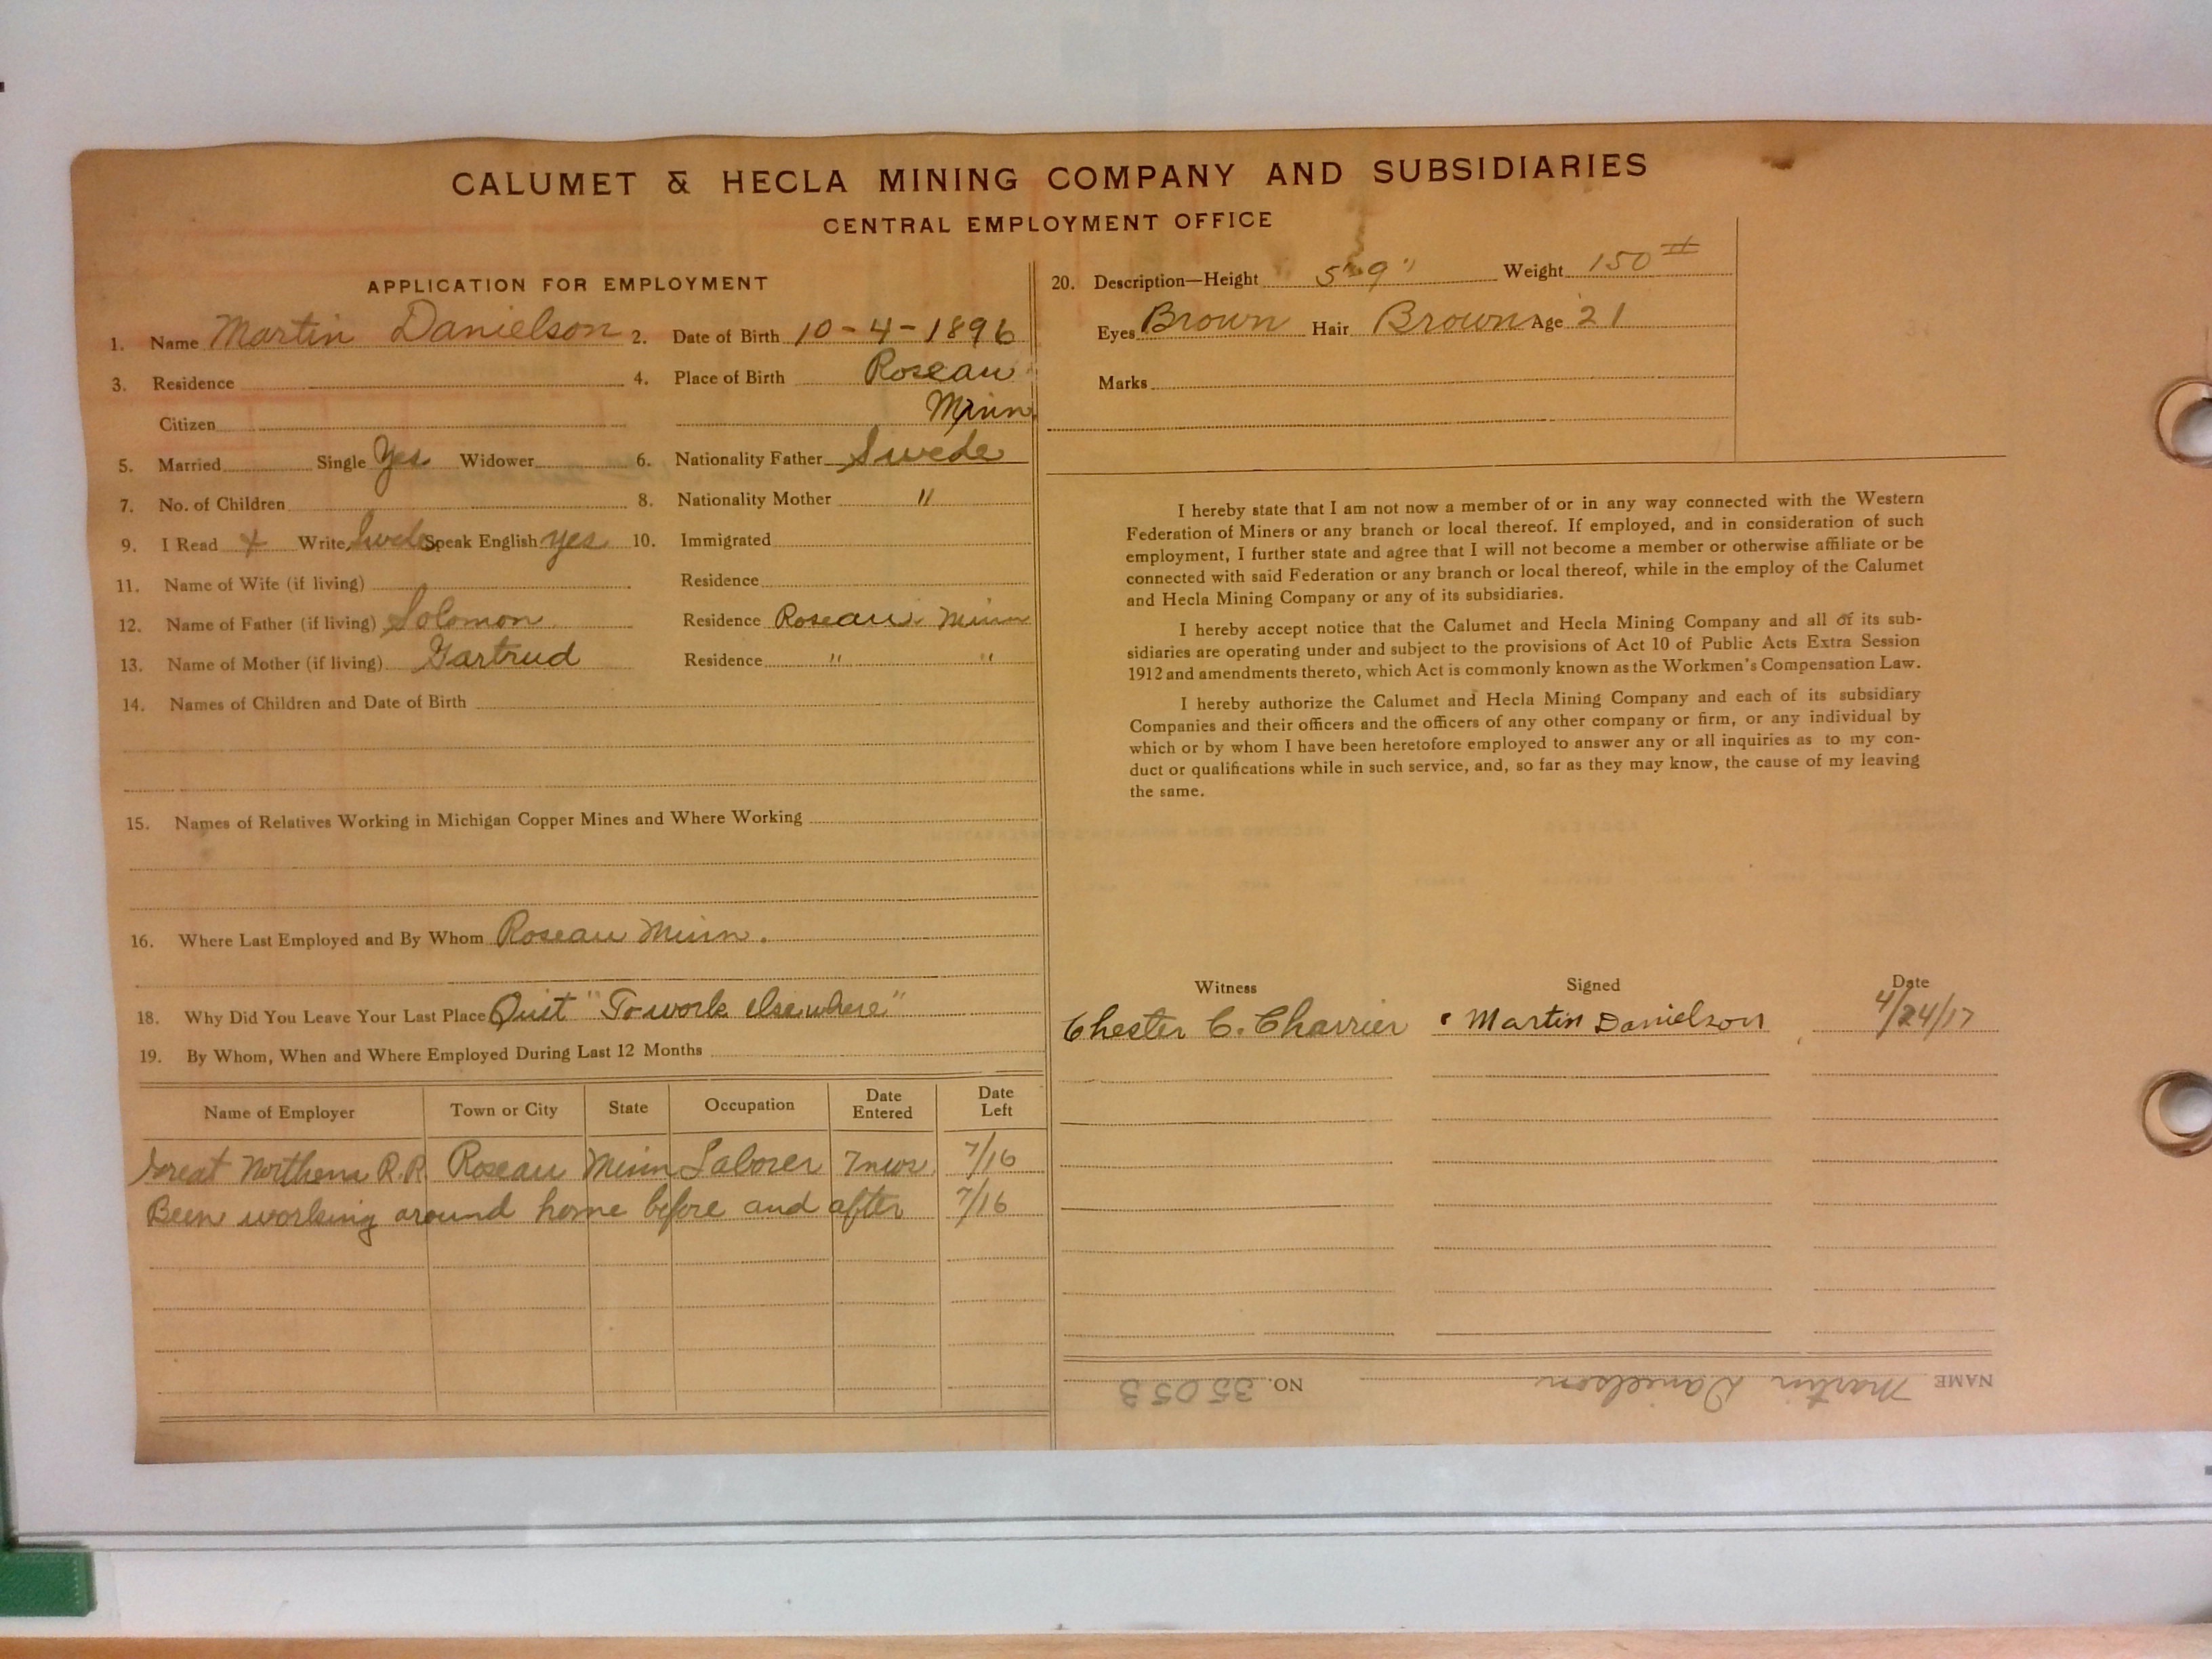 CALUMET & HECLA MINING COMPANY AND SUBSIDIARIES
CENTRAL EMPLOYMENT OFFICE
APPLICATION FOR EMPLOYMENT
1. Name Martin Danielson 2. Date of Birth 10-4-1896
3. Residence 4. Place of Birth Roseau
Citizen Minn.
5. Married Single Yes Widower 6. Nationality Father Swede
7. No. of Children 8. Nationality Mother "
9. I Read + Write Swede Speak English yes 10. Immigrated
11. Name of Wife (if living) Residence
12. Name of Father (if living) Solomon Residence Roseau Minn
13. Name of Mother (if living) Gartrud Residence " "
14. Names of Children and Date of Birth
15. Names of Relatives Working in Michigan Copper Mines and Where Working
16. Where Last Employed and By Whom Roseau Minn.
18. Why Did You Leave Your Last Place Quit "To work elsewhere"
19. By Whom, When and Where Employed During Last 12 Months
Name of Employer Town or City State Occupation Date Entered Date Left
Great Northern R.R. Roseau Minn Laborer 7 mos. 7/16
Been working around home before and after 7/16
20. Description—Height 5' 9" Weight 150 #
Eyes Brown Hair Brown Age 21
Marks
I hereby state that I am not now a member of or in any way connected with the Western
Federation of Miners or any branch or local thereof. If employed, and in consideration of such
employment, I further state and agree that I will not become a member or otherwise affiliate or be
connected with said Federation or any branch or local thereof, while in the employ of the Calumet
and Hecla Mining Company or any of its subsidiaries.
I hereby accept notice that the Calumet and Hecla Mining Company and all of its sub-
sidiaries are operating under and subject to the provisions of Act 10 of Public Acts Extra Session
1912 and amendments thereto, which Act is commonly known as the Workmen's Compensation Law.
I hereby authorize the Calumet and Hecla Mining Company and each of its subsidiary
Companies and their officers and the officers of any other company or firm, or any individual by
which or by whom I have been heretofore employed to answer any or all inquiries as to my con-
duct or qualifications while in such service, and, so far as they may know, the cause of my leaving
the same.
Witness Signed Date
Chester C. Charrier Martin Danielson 4/24/17
NAME Martin Danielson NO. 35053